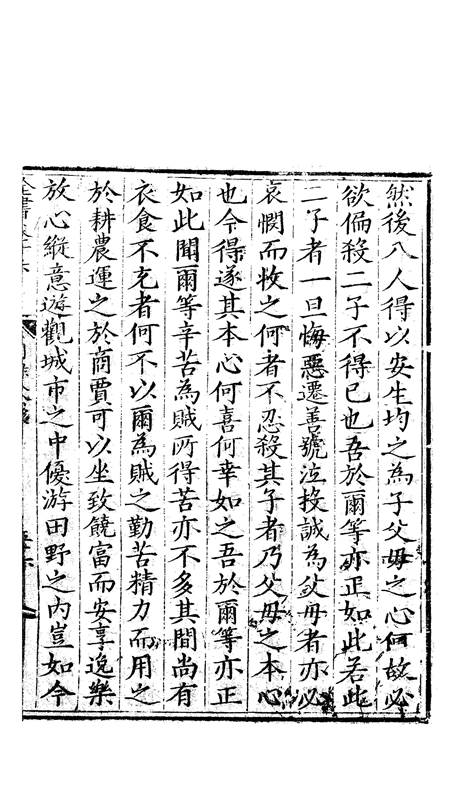 然後八人得以安生均之為子父毋之心何故必
欲偏殺二子不得已也吾於爾等亦正如此若此
二子者一旦悔惡遷善號泣投誠為父毋者亦必
哀憫而收之何者不忍殺其子者乃父毋之本心
也今得遂其本心何喜何幸如之吾於爾等亦正
如此聞爾等辛苦為賊所得苦亦不多其間尚有
衣食不充者何不以爾為賊之勤苦精力而用之
於耕農運之於商賈可以坐致饒富而安享逸樂
放心縱意遊觀城市之中優游田野之内豈如今